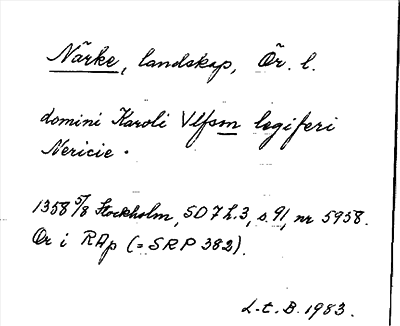 Närke, landskap, Ör. l.
domini Karoli Vlfsm legiferi
Nericie.
1358 5/8 Stockholm, SD 7 h.3, s. 91, nr 5958.
Or i RAp (= SRP 382).
L.t. B. 1983.